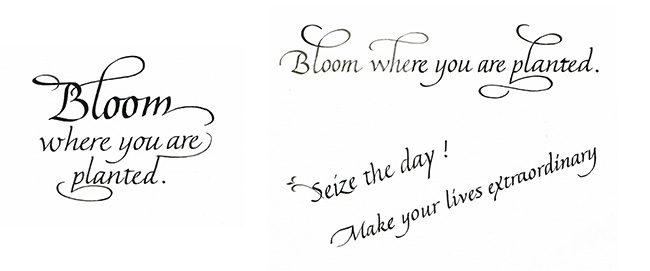 Bloom
where you are
planted.
Bloom where you are planted.
Seize the day !
Make your lives extraordinary